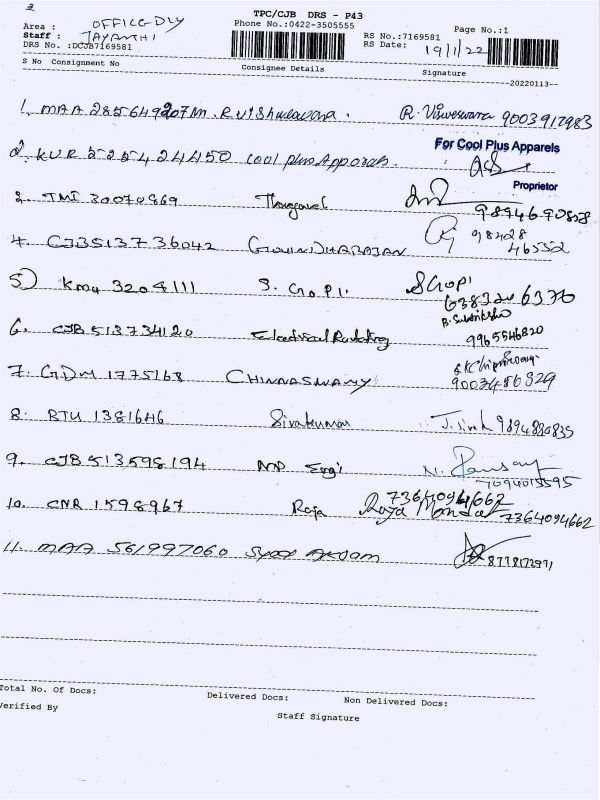 2
TPC/CJB DRS - P43
Area : OFFICE DLY
Phone No.:0422-3505555
Page No.:1
Staff : JAYANTHI
RS No.:7169581
DRS No. :DCJB7169581
RS Date: 19/1/22
S No Consignment No Consignee Details Signature
20220113
1. MAA 285649207 R. Vishweswara
R. Visweswara 9003917983
2. KUR 225424450 Cool plus Apparels.
For Cool Plus Apparels
Proprietor
3. TMI 30070969 Thangavel
4. CJB513736042 GOVINDHARAJAN
98428
46552
5) KMU 3204111 S. GOPI.
S Gopi
6. CJB 513734120 Electrical
9965546820
7. GDM 1775168 CHINNASWAMY
8. BTU 1381646 Sivakumar
9894880835
9. CJB 513598194 MP Engi
7094015595
10. CNR 1598967 Raja
7364094662
Raja Mandal 7364094662
11. MAA 561997060 Syed Akram
Total No. Of Docs:
Delivered Docs:
Non Delivered Docs:
Verified By
Staff Signature